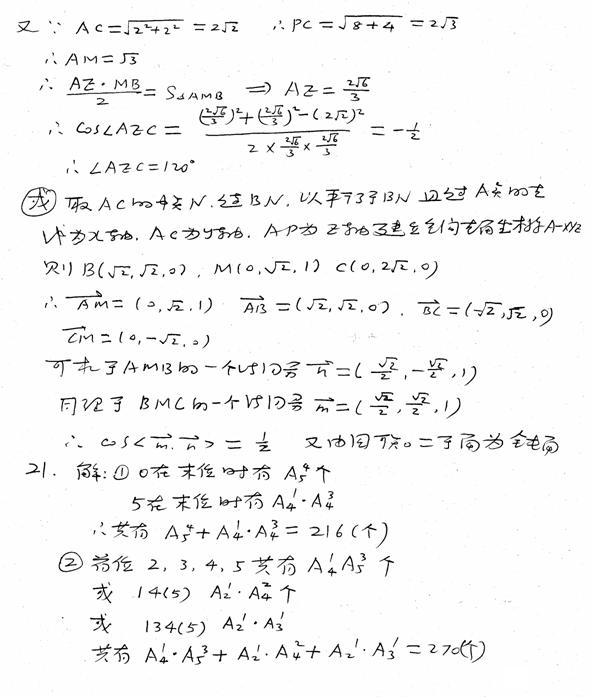 又∵ AC=√(2²+2²) =2√2 ∴PC=√(8+4) =2√3
∴AM=√3
∴ (AZ·MB)/2 = S△AMB ⇒ AZ=2√6/3
∴ cos∠AZC = ((2√6/3)²+(2√6/3)²-(2√2)²)/(2×2√6/3×2√6/3) = -1/2
∴∠AZC=120°
(或) 取AC的中点N.连BN.以平行于BN且过A点的直
线为x轴.AC为y轴.AP为z轴建立空间直角坐标系A-xyz
则B(√2,√2,0), M(0,√2,1) C(0,2√2,0)
∴ AM→=(0,√2,1) AB→=(√2,√2,0). BC→=(-√2,√2,0)
CM→=(0,-√2,0)
可求平AMB的一个法向量 n→=(√2/2,-√2/2,1)
同理平BMC的一个法向量 m→=(√2/2,√2/2,1)
∴ cos<m→,n→>=1/2 又由图可知二平面为钝角
21. 解:① 0在末位时有A₅⁴个
5在末位时有A₄¹·A₄³
∴共有 A₅⁴+A₄¹·A₄³=216(个)
② 首位2,3,4,5共有A₄¹A₅³个
或 14(5) A₂¹·A₄²个
或 134(5) A₂¹·A₃¹
共有 A₄¹·A₅³+A₂¹·A₄²+A₂¹·A₃¹=270(个)